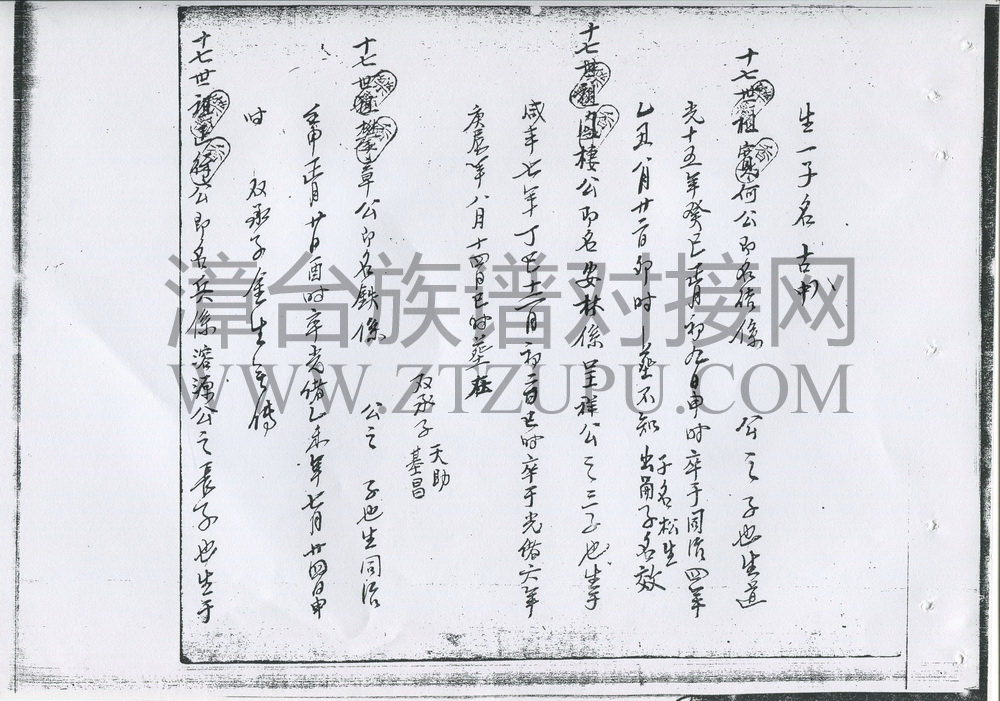 生一子名古中
十七世祖寬何公即名信係 公之 子也生道
光十五年癸巳正月初九日申时卒于同治四年
乙丑八月廿二日卯时 葬不知 出甬子名效
子名松生
十七世祖 樓公即名安林係呈祥公之三子也生于
咸丰七年丁巳十二月初 日巳时卒于光绪六年
庚辰年八月十四日巳时葬在
双承子 天助
基昌
十七世祖攀章公即名鉄係 公之 子也生同治
壬申正月廿 日酉时卒光绪乙未年七月廿四日申
时 双承子金生 傳
十七世祖 公即名兵係溶源公之長子也生于
漳台族谱对接网
WWW.ZTZUPU.COM